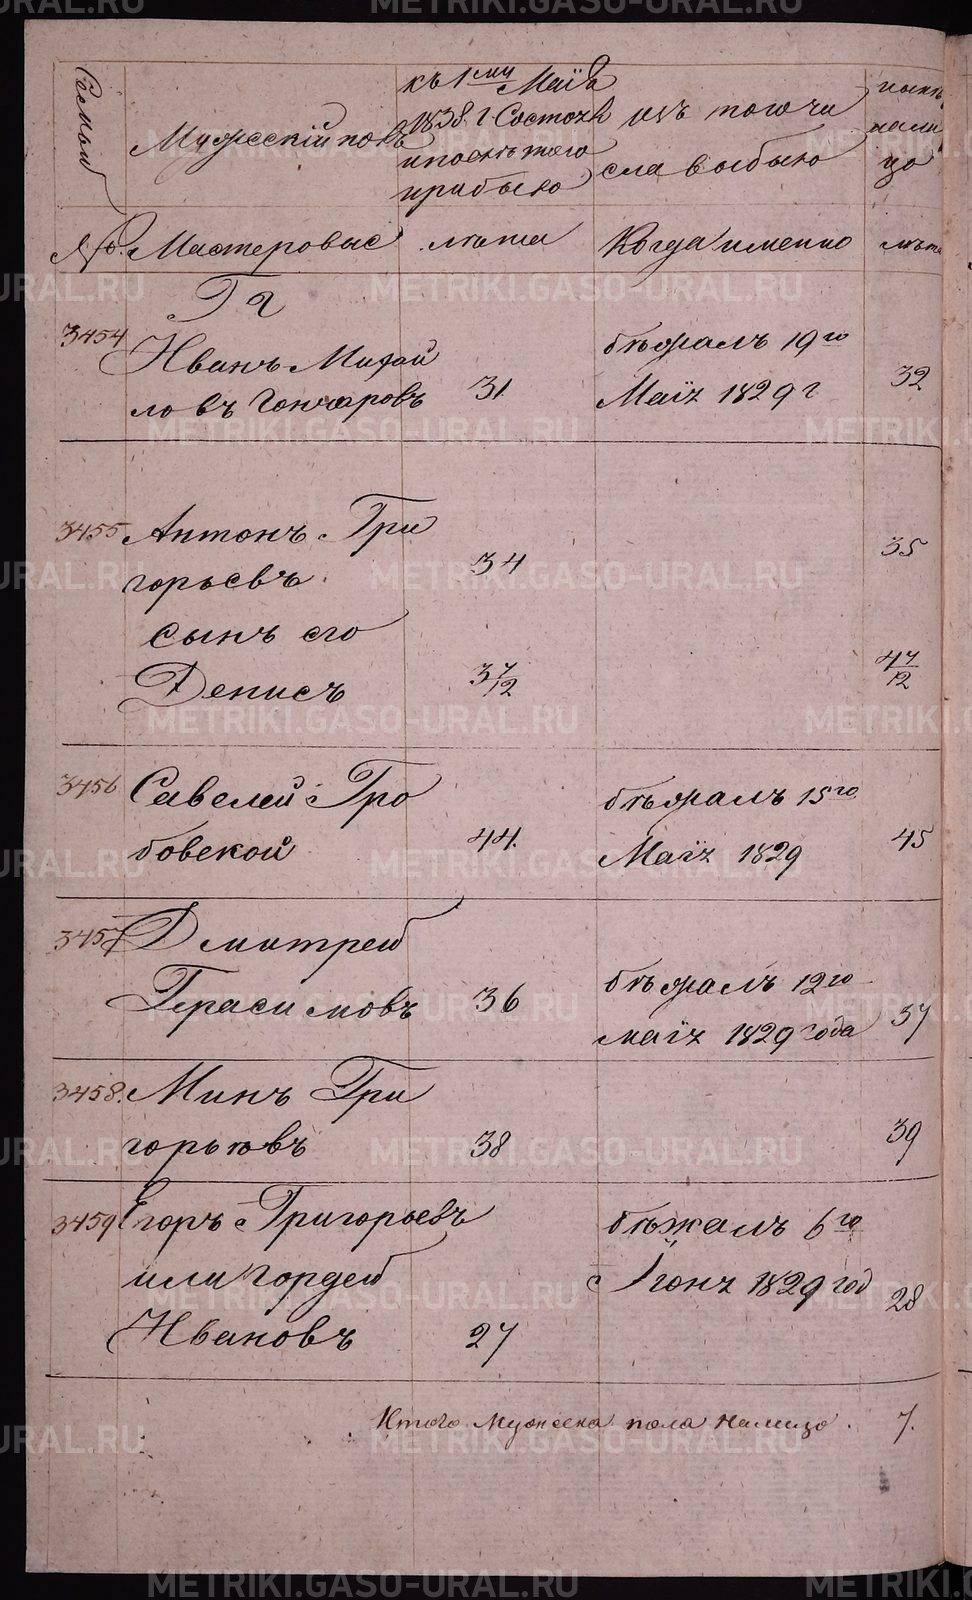 Семьи
Мужескій полъ
къ 1му Маія
1838. г. Состояло
и послѣ того
прибыло
изъ того чи
сла выбыло
нынѣ
нали
цо
№. Мастеровые
лѣта
Когда именно
лѣта
3454
Иванъ Михай
ловъ Гончаровъ
31.
бѣжалъ 19го
Маія 1829 г
32
3455
Антонъ Гри
горьевъ
34
35
сынъ его
Денисъ
3 7/12
4 7/12
3456
Савелей Гро
бовской
44.
бѣжалъ 15го
Маія 1829
45
3457
Дмитрей
Герасимовъ
36
бѣжалъ 12го
маія 1829 года
37
3458.
Минъ Гри
горьевъ
38
39
3459
Егоръ Григорьевъ
или Гордей
Ивановъ
27
бѣжалъ 6го
Іюня 1829 год
28
Итого Мужеска пола налицо.
7.
METRIKI.GASO-URAL.RU